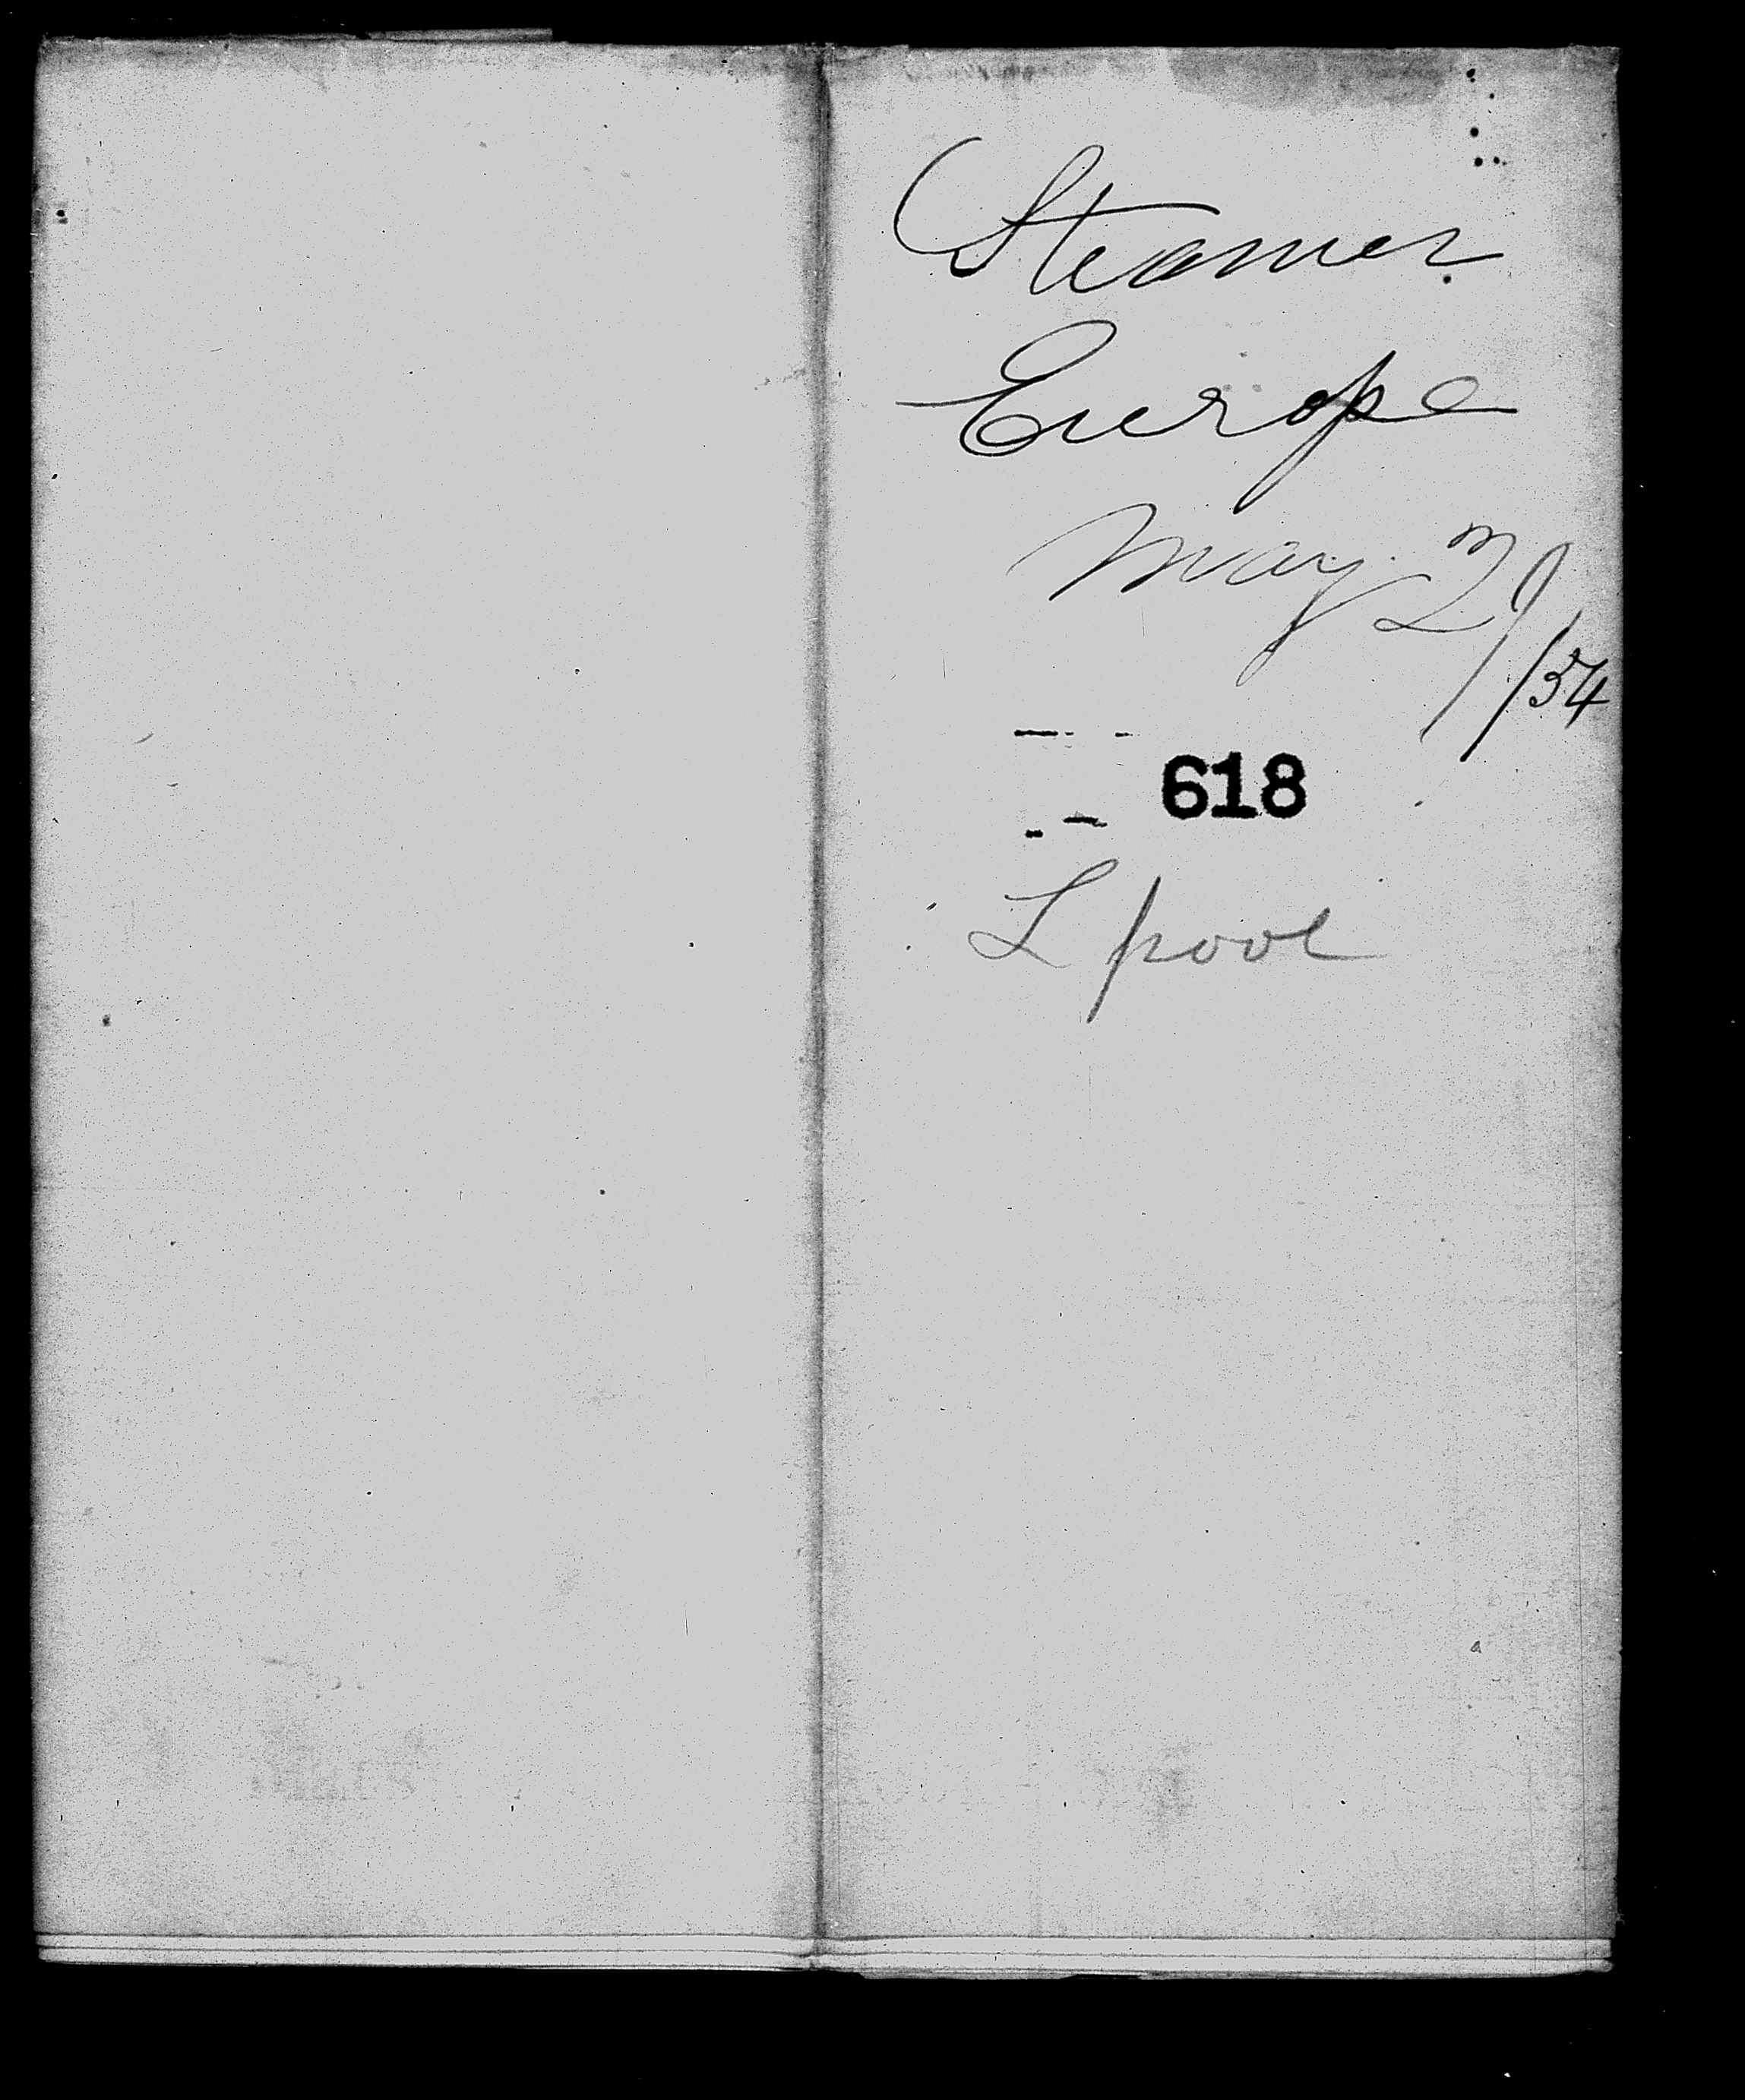 Steamer
Europe
May 29/54
618
L pool